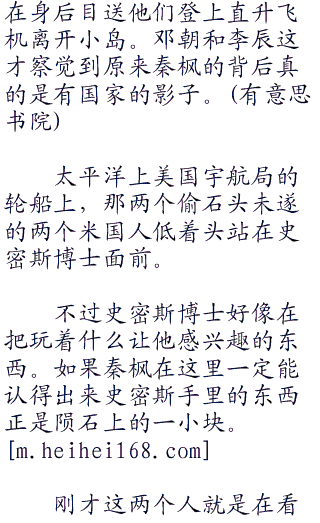 在身后目送他们登上直升飞
机离开小岛。邓朝和李辰这
才察觉到原来秦枫的背后真
的是有国家的影子。(有意思
书院)
太平洋上美国宇航局的
轮船上，那两个偷石头未遂
的两个米国人低着头站在史
密斯博士面前。
不过史密斯博士好像在
把玩着什么让他感兴趣的东
西。如果秦枫在这里一定能
认得出来史密斯手里的东西
正是陨石上的一小块。
[m.heihei168.com]
刚才这两个人就是在看